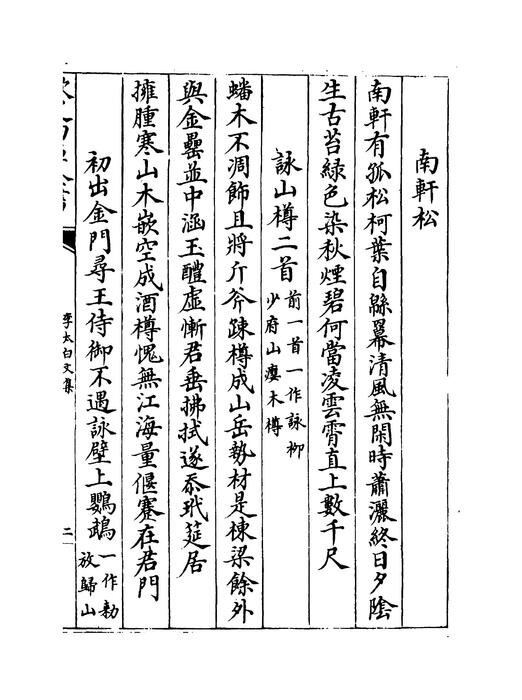 南軒松
南軒有孤松柯葉自緜冪清風無閑時蕭灑終日夕陰
生古苔綠色染秋煙碧何當凌雲霄直上數千尺
詠山樽二首前一首一作詠柳少府山癭木樽
蟠木不凋飾且將斤斧疎樽成山岳勢材是棟梁餘外
與金罍並中涵玉醴虛慚君垂拂拭遂忝玳筵居
擁腫寒山木嵌空成酒樽愧無江海量偃蹇在君門
初出金門尋王侍御不遇詠壁上鸚鵡一作勑放歸山
李太白文集
二